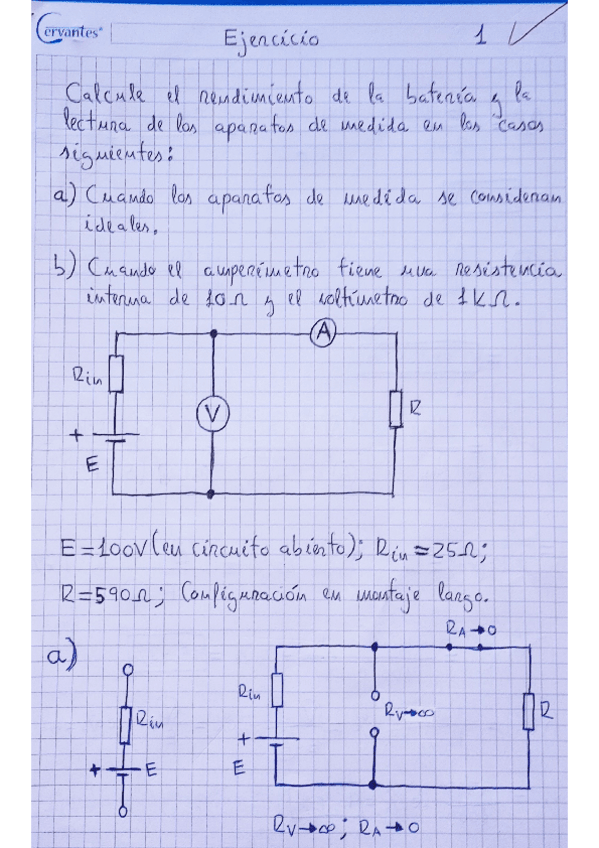 Cervantes®
Ejercicio 1
Calcule el rendimiento de la batería y la
lectura de los aparatos de medida en los casos
siguientes:
a) Cuando los aparatos de medida se consideran
ideales.
b) Cuando el amperímetro tiene una resistencia
interna de 10Ω y el voltímetro de 1KΩ.
A
Rin
V
R
+
E
E=100V(en circuito abierto); Rin=25Ω;
R=590Ω; Configuración en montaje largo.
RA→0
a)
Rin
Rin
RV→∞
R
+ E
+
E
RV→∞; RA→0